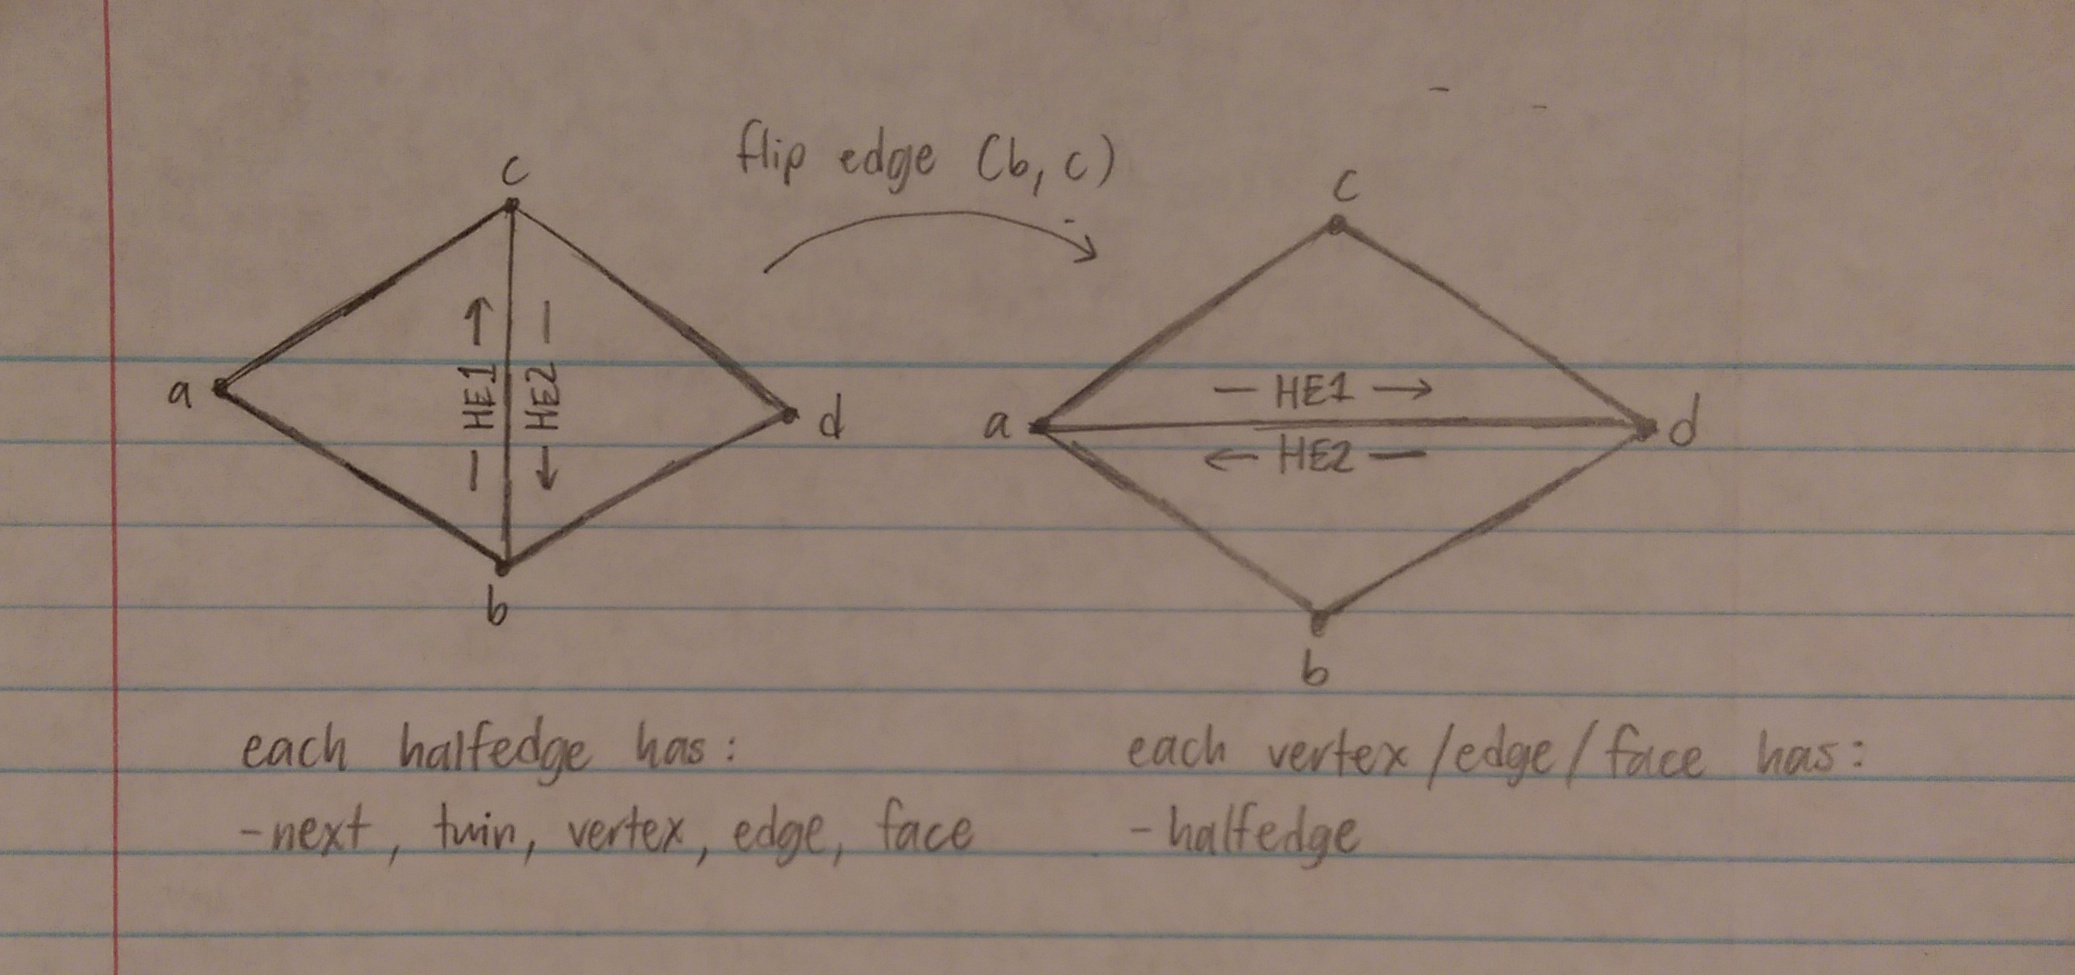 flip edge (b, c)
c
a
HE1
HE2
d
b
c
a
HE1
HE2
d
b
each halfedge has:
-next, twin, vertex, edge, face
each vertex/edge/face has:
-halfedge